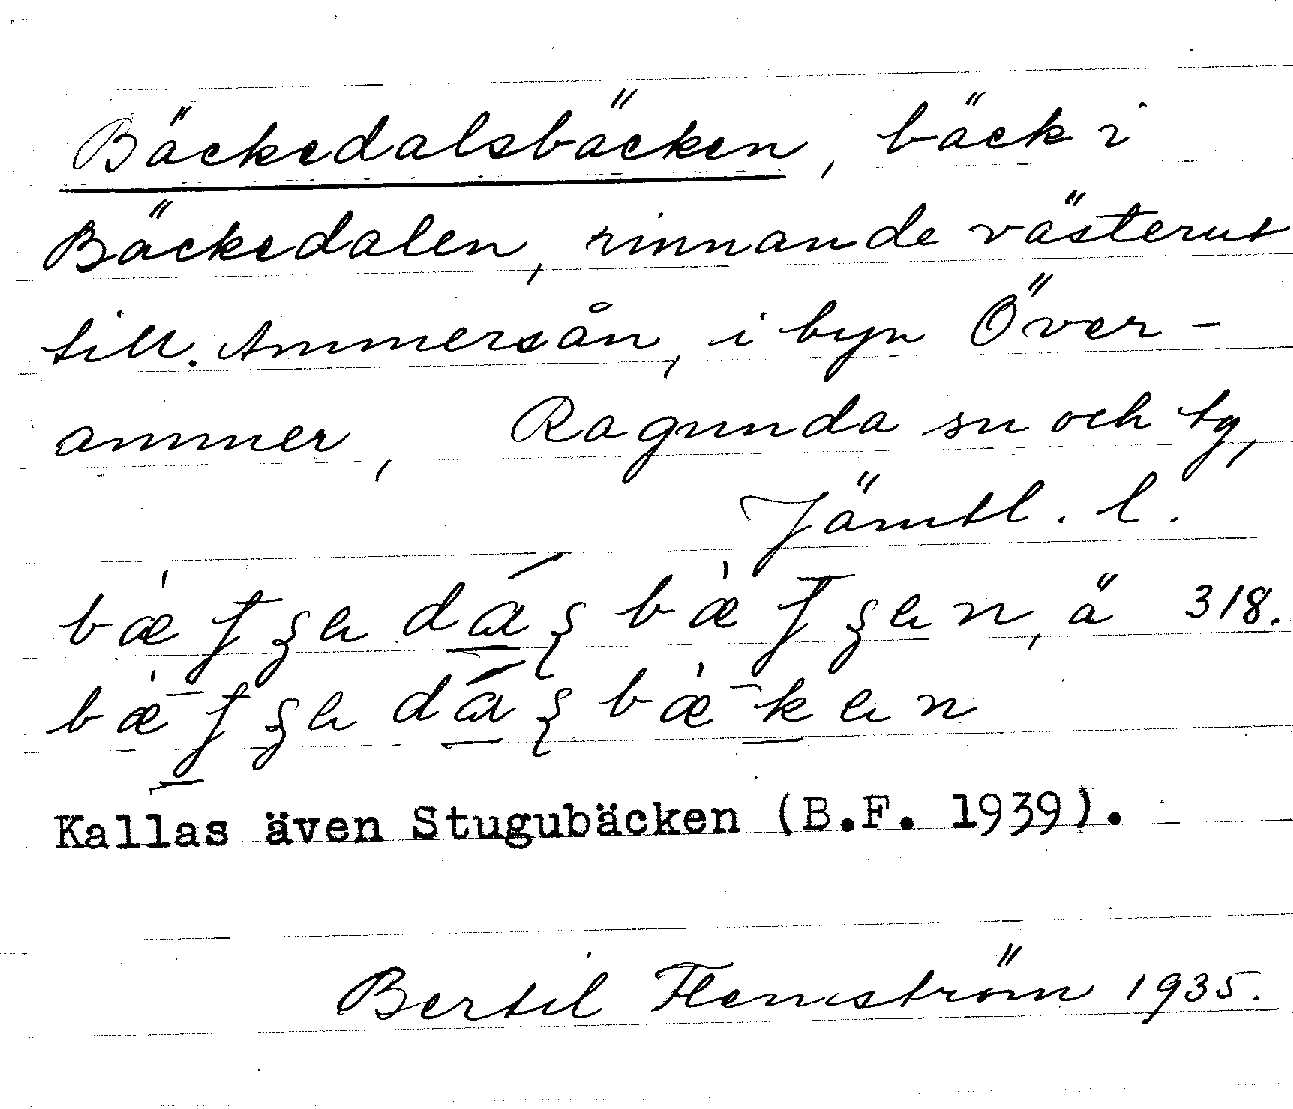 Bäckedalsbäcken, bäck i
Bäckedalen, rinnande västerut
till Ammersån, i byn Över-
ammer, Ragunda sn och tg,
Jämtl. l.
ä 318.
Kallas även Stugubäcken (B.F. 1939).
Bertil Flemström 1935.